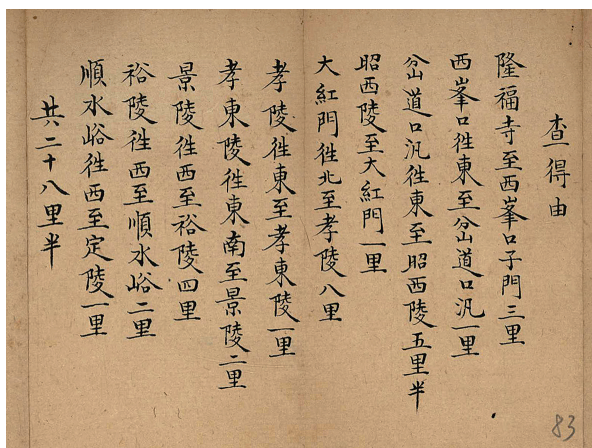 查得由
隆福寺至西峯口子門三里
西峯口徃東至岔道口汛一里
岔道口汛徃東至昭西陵五里半
昭西陵至大紅門一里
大紅門徃北至孝陵八里
孝陵徃東至孝東陵一里
孝東陵徃東南至景陵二里
景陵徃西至裕陵四里
裕陵徃西至順水峪二里
順水峪徃西至定陵一里
共二十八里半
83